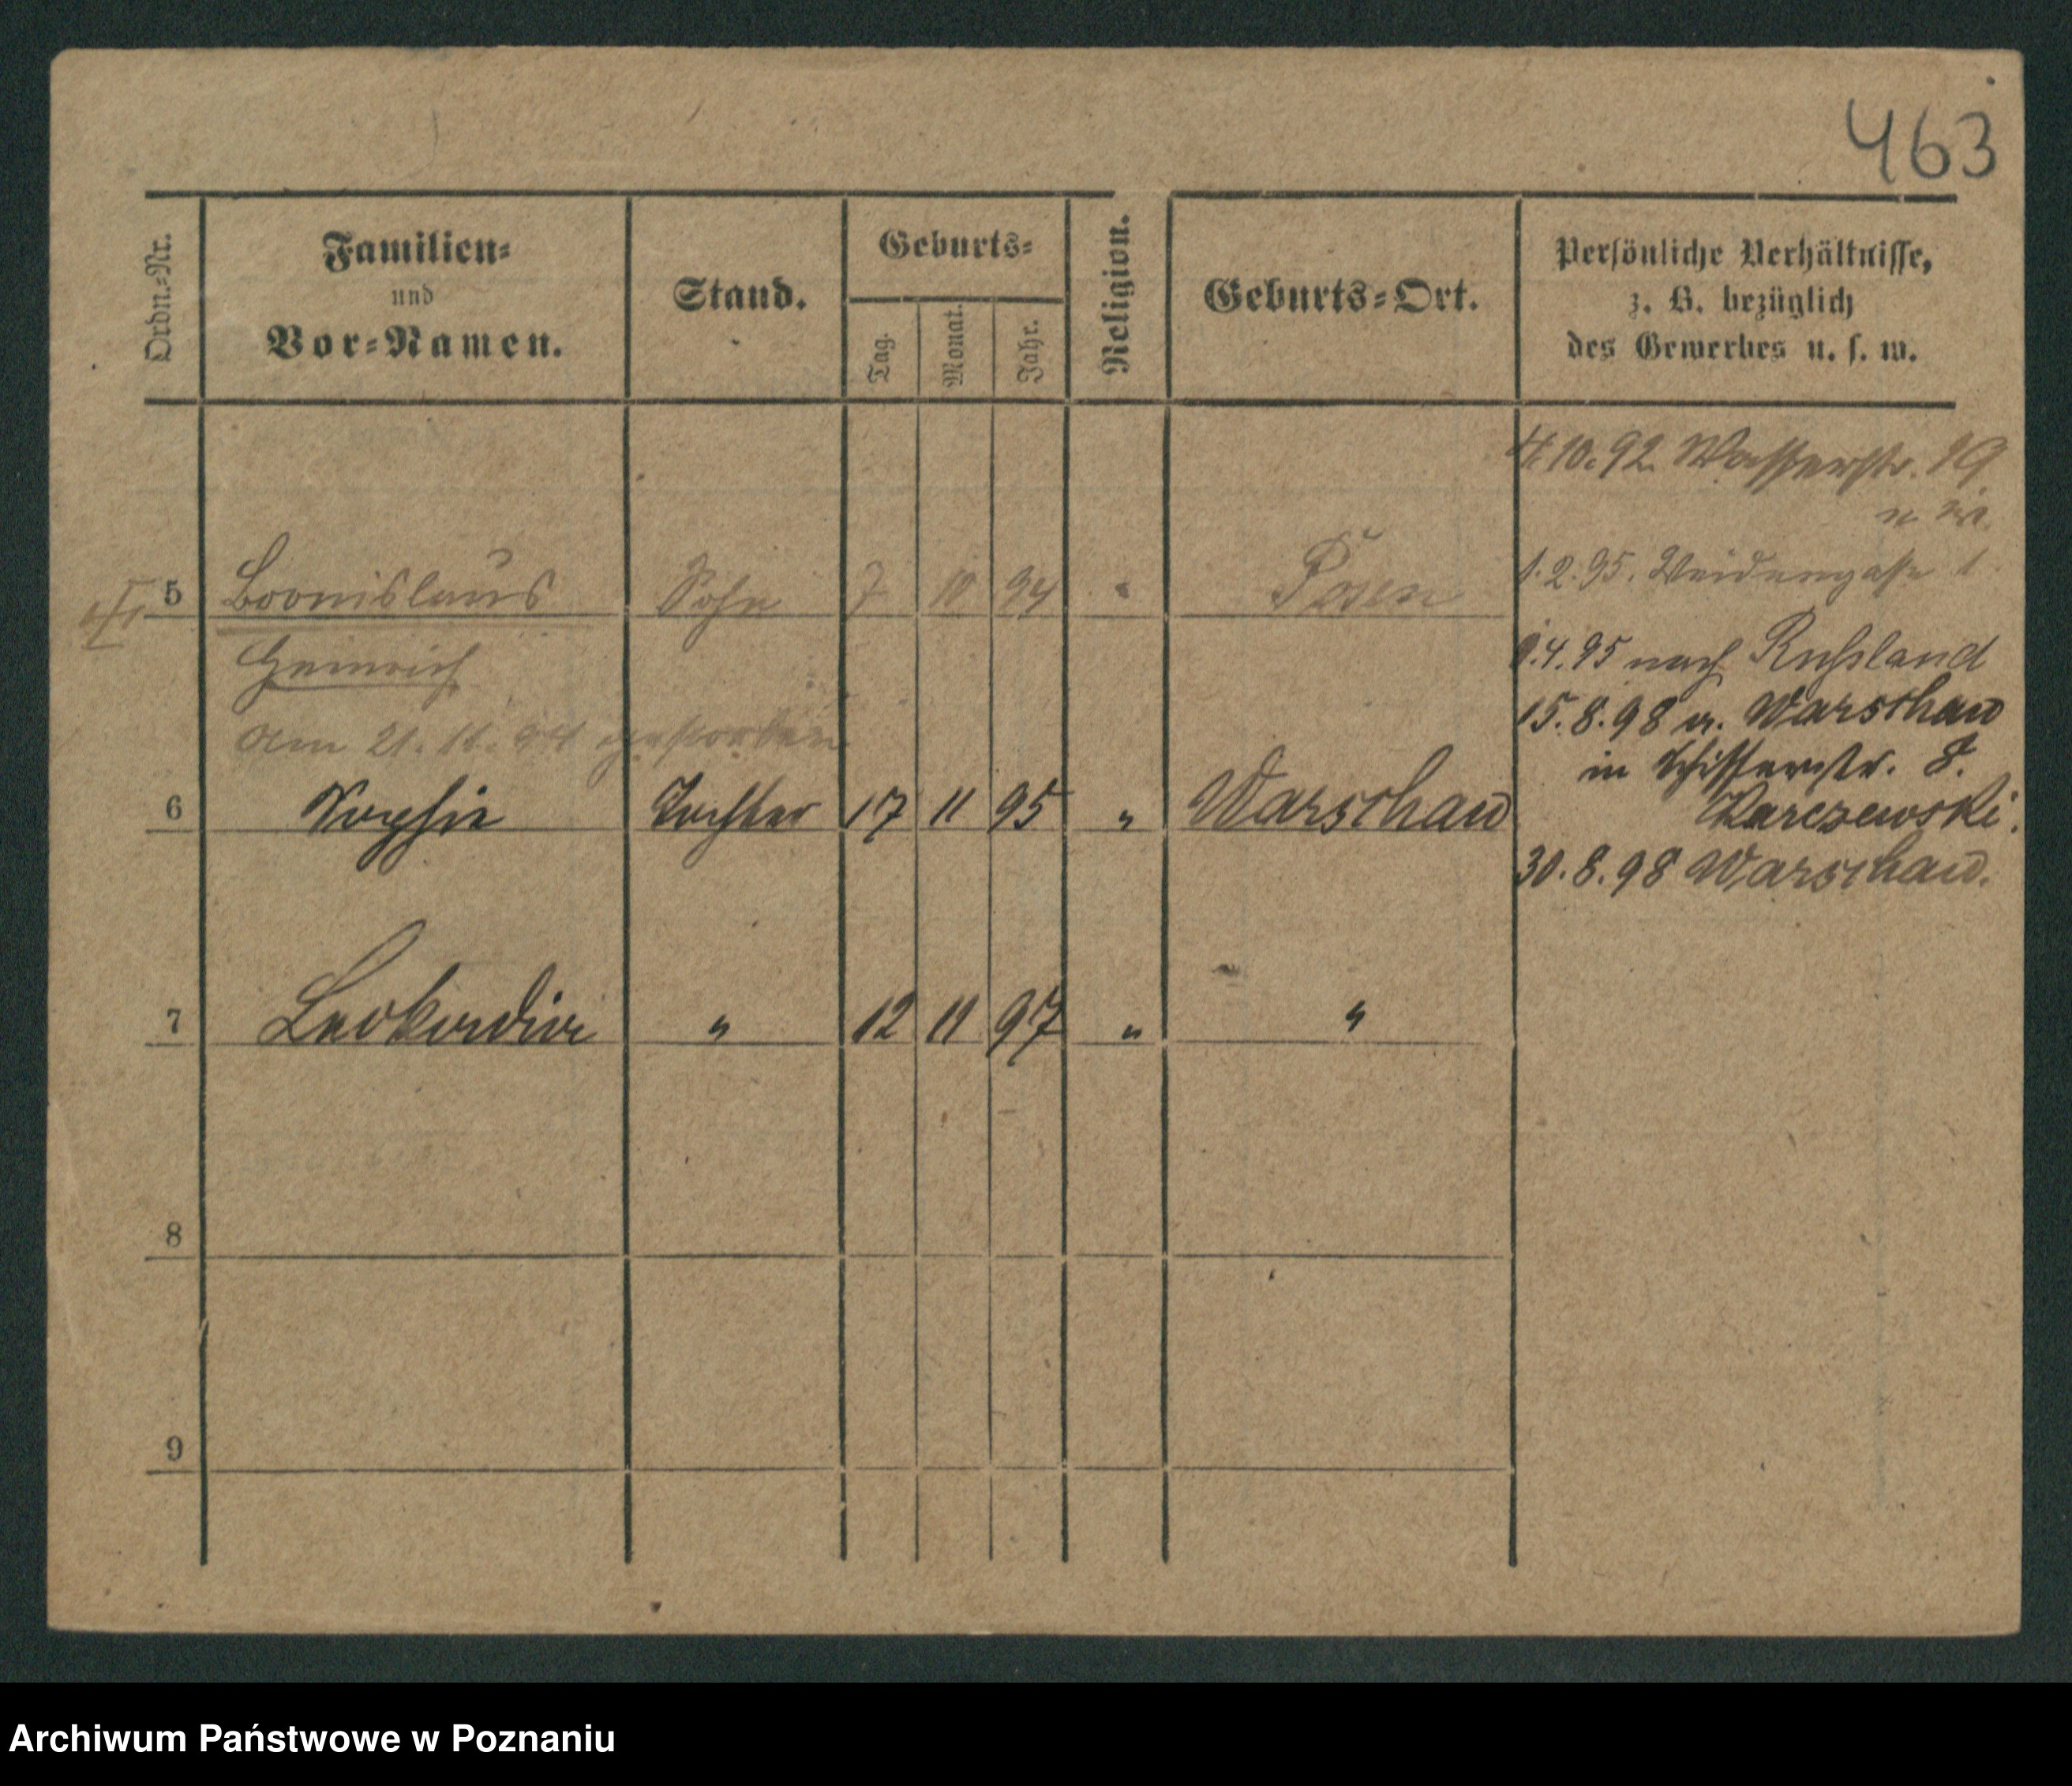 463
Ordn.-Nr.
Familien-
und
Vor-Namen.
Stand.
Geburts-
Tag.
Monat.
Jahr.
Religion.
Geburts-Ort.
Persönliche Verhältnisse,
z. B. bezüglich
des Gewerbes u. s. w.
4.10.92. Wasserstr. 19
1.2.95. Weidengasse 1
5 Bronislaus Sohn 7 10 94 " Posen
Heinrich
.4.95 nach Russland
am 21.11.94 gestorben
15.8.98 a. Warschau
in Schifferstr. 8.
6 Sophie Tochter 17 11 95 " Warschau
Karczewski.
30.8.98 Warschau.
7 Leokadia " 12 11 97 " "
8
9
Archiwum Państwowe w Poznaniu